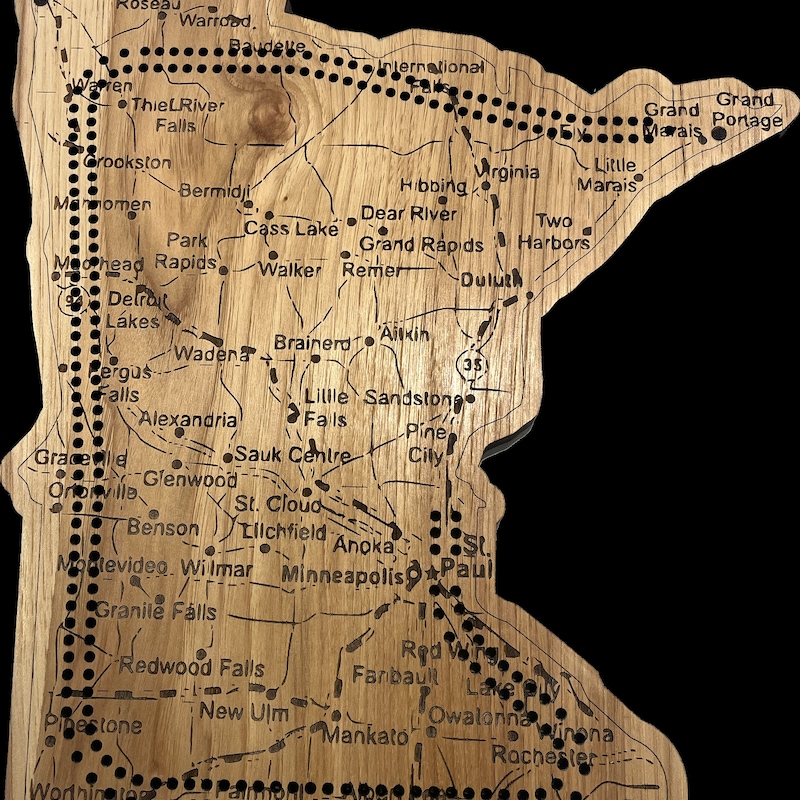 Roseau
Warroad
Baudette
International
Falls
Warren
Thief River
Falls
Grand
Marais
Grand
Portage
Ely
Crookston
Virginia
Little
Marais
Bermidji
Hibbing
Mahnomen
Cass Lake
Dear River
Two
Harbors
Park
Rapids
Grand Rapids
Moorhead
Walker
Remer
Duluth
94
Detroit
Lakes
Brainerd
Aitkin
Wadena
35
Fergus
Falls
Little
Falls
Sandstone
Alexandria
Pine
City
Graceville
Sauk Centre
Glenwood
Ortonville
St. Cloud
Benson
Litchfield
Anoka
St.
Paul
Montevideo
Willmar
Minneapolis
Granite Falls
Red Wing
Redwood Falls
Faribault
Lake City
New Ulm
Owatonna
Winona
Pipestone
Mankato
Rochester
Worthington
Fairmont
Albert Lea